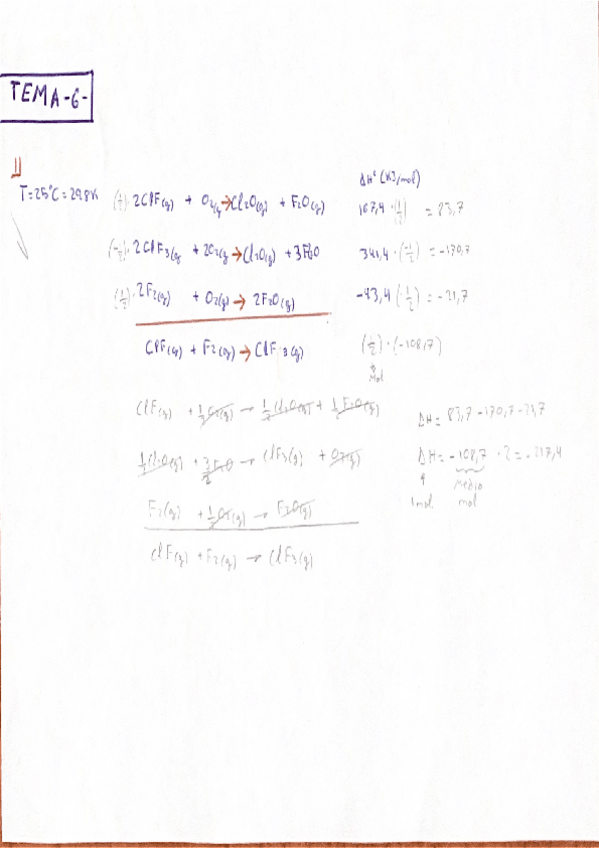 TEMA-6-
1)
ΔHº (KJ/mol)
T=25ºC=298K (1/2)· 2ClF(g) + O2(g) → Cl2O(g) + F2O(g) 167,4 ·(1/2) = 83,7
(-1/2)· 2ClF3(g + 2O2(g → Cl2O(g) + 3F2O 341,4 ·(-1/2) = -170,7
(1/2)· 2F2(g) + O2(g) → 2F2O(g) -43,4 (·1/2) = -21,7
ClF(g) + F2(g) → ClF3(g) (1/2)·(-108,7)
mol
ClF(g) + 1/2 O2(g) → 1/2 Cl2O(g) + 1/2 F2O(g) ΔH = 83,7-170,7-21,7
1/2 Cl2O(g) + 3/2 F2O → ClF3(g) + O2(g) ΔH = -108,7 · 2 = -217,4
1mol medio mol
F2(g) + 1/2 O2(g) → F2O(g)
ClF(g) + F2(g) → ClF3(g)